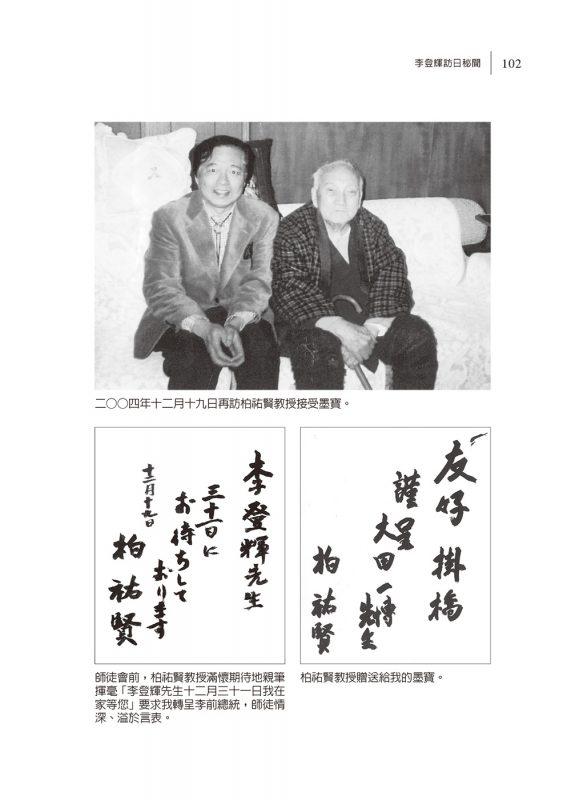 李登輝訪日秘聞 102
二〇〇四年十二月十九日再訪柏祐賢教授接受墨寶。
李登輝先生
三十一日に
お待ちして
おります
十二月十九日
柏祐賢
友好掛橋
謹呈
大田一博先生
柏祐賢
師徒會前，柏祐賢教授滿懷期待地親筆
揮毫「李登輝先生十二月三十一日我在
家等您」要求我轉呈李前總統，師徒情
深、溢於言表。
柏祐賢教授贈送給我的墨寶。